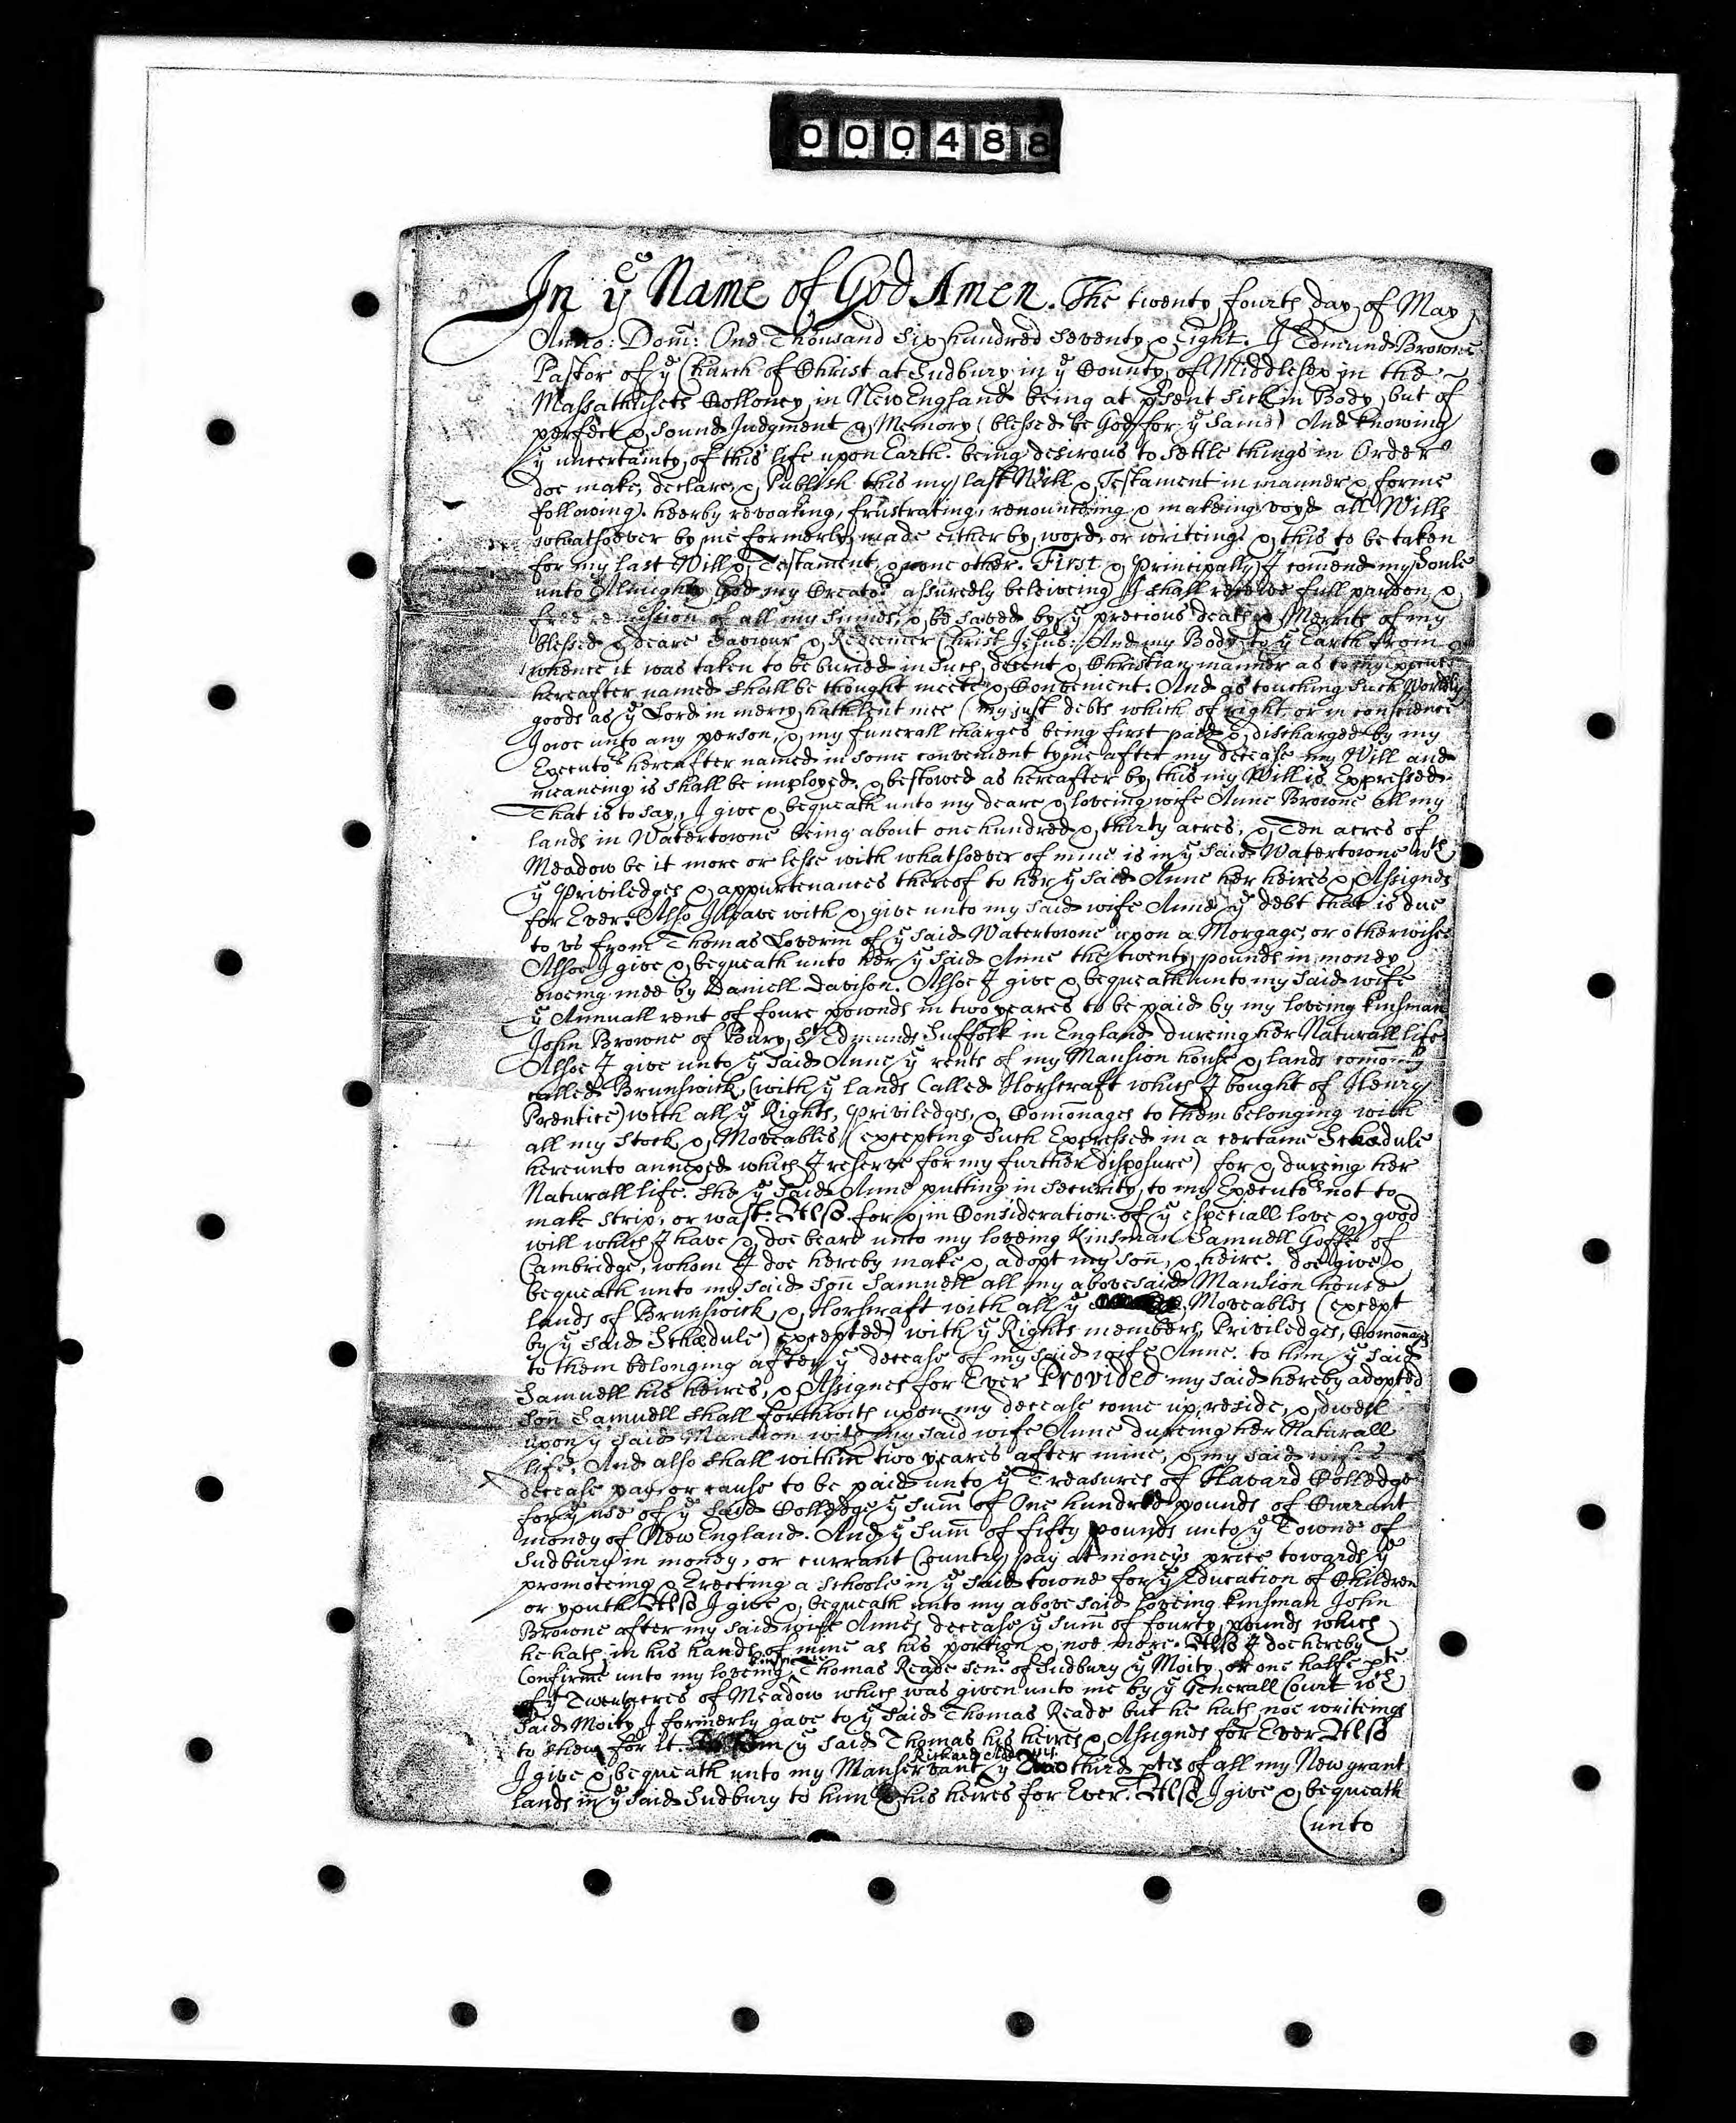 000488
In yͤ Name of God Amen. The twenty fourth day of May
Anno: Dom̄: One Thousand Six hundred Seventy & Eight. I Edmund Browne
Pastor of yͤ Church of Christ at Sudbury in yͤ County of Middlesex in the
Massathusets Colloney in New England being at p̱sent sick in Body, but of
perfect & sound Judgment & Memory (blessed be God for yͤ same) And knowing
yͤ uncertainty of this life upon Earth. being desirous to settle things in Order
doe make, declare, & Publish this my last Will & Testament in manner & forme
following. heerby revoaking, frustrating, renounceing & makeing voyd all Wills
whatsoever by me formerly made either by word, or writeing. & this to be taken
for my last Will & Testament & none other. First & Principally I com̄end my Soule
unto Almighty God my Creatoʳ assuredly beleiveing I shall receive full pardon, &
free remission of all my sinnes, & be saved by yͤ precious death & Merrits of my
blessed & deare Saviour & Redeemer Christ Jesus: And my Body to yͤ Earth from
whence it was taken to be buried in such decent & Christian manner as to my
hereafter named shall be thought meete & Convenient. And as touching such Worldly
goods as yͤ Lord in mercy hath lent mee (my just debts which of right or in conscience
I owe unto any person, & my funerall charges being first paid & discharged by my
Executoʳˢ hereafter named in some convenient tyme after my decease my Will and
meaneing is shall be imployed, & bestowed as hereafter by this my Will is Expressed
That is to say, I give & bequeath unto my deare & loveing wife Anne Browne all my
lands in Watertowne being about one hundred & thirty acres, & Ten acres of
Meadow be it more or lesse with whatsoever of mine is in yͤ said Watertowne wᵗʰ
yͤ Priviledges & appurtenances thereof to her yͤ said Anne her heires & Assignes
for Ever. Also I leave with & give unto my said wife Anne yͤ debt that is due
to us from Thomas Loverin of yͤ said Watertowne upon a Morgage, or otherwise
Alsoe I give & bequeath unto her yͤ said Anne the twenty pounds in money
oweing mee by Daniell Davison. Alsoe I give & bequeath unto my said wife
yͤ Annuall rent of foure pownds in two yeares to be paid by my loveing kinsman
John Browne of Bury Sᵗ Edmunds Suffolk in England dureing her Naturall life
Alsoe I give unto yͤ said Anne yͤ rents of my Mansion house & lands com̄only
called Brunswick, (with yͤ lands Called Horscraft which I bought of Henry
Prentice) with all yͤ Rights, Priviledges, & Com̄onages to them belonging with
all my stock & Moveables (excepting such Expressed in a certaine Schædule
hereunto annexed which I reserve for my further disposure) for & dureing her
Naturall life. she yͤ said Anne putting in security to my Executoʳˢ not to
make strip, or wast. Also for & in Consideration of yͤ especiall love & good
will which I have & doe beare unto my loveing Kinsman Samuell Goffe of
Cambridge, whom I doe hereby make & adopt my son̄, & heire. doe give &
bequeath unto my said son̄ Samuell all my abovesaid Mansion house
lands of Brunswick, & Horscraft with all yͤ Moveables (except
by yͤ said Schædule) excepted) with yͤ Rights members, Priviledges, Com̄onages
to them belonging after yͤ decease of my said wife Anne. to him yͤ said
Samuell his heires, & Assignes for Ever Provided my said hereby adopted
son̄ Samuell shall forthwith upon my decease come up, reside, & dwell
upon yͤ said Mansion with my said wife Anne dureing her Naturall
life. And also shall within two yeares after mine, & my said wifes
decease pay, or cause to be paid unto yͤ Treasurer of Havard Colledge
for yͤ use of yͤ said Colledge yͤ sum̄ of One hundred pounds of Currant
money of New England. And yͤ sum̄ of fifty pounds unto yͤ Towne of
Sudbury in money, or currant Country pay at moneys price towards yͤ
promoteing & Erecting a Schoole in yͤ said towne for yͤ Education of Children
or youth. Also I give & bequeath unto my abovesaid loveing kinsman John
Browne after my said wife Annes decease yͤ sum̄ of fourty pounds which
he hath in his hands of mine as his portion & noe more. Also I doe hereby
Confirme unto my loveing kinsman Thomas Reade Senʳ of Sudbury yͤ Moity or one halfe pᵗᵉ
of yͤ acres of Meadow which was given unto me by yͤ Generall Court wᶜʰ
said Moity I formerly gave to yͤ said Thomas Reade but he hath noe writeings
to shew for it. yͤ said Thomas his heires & Assignes for Ever Also
I give & bequeath unto my Manservant Richard yͤ third ptes of all my New grant
lands in yͤ said Sudbury to him & his heires for Ever. Also I give & bequeath
(unto